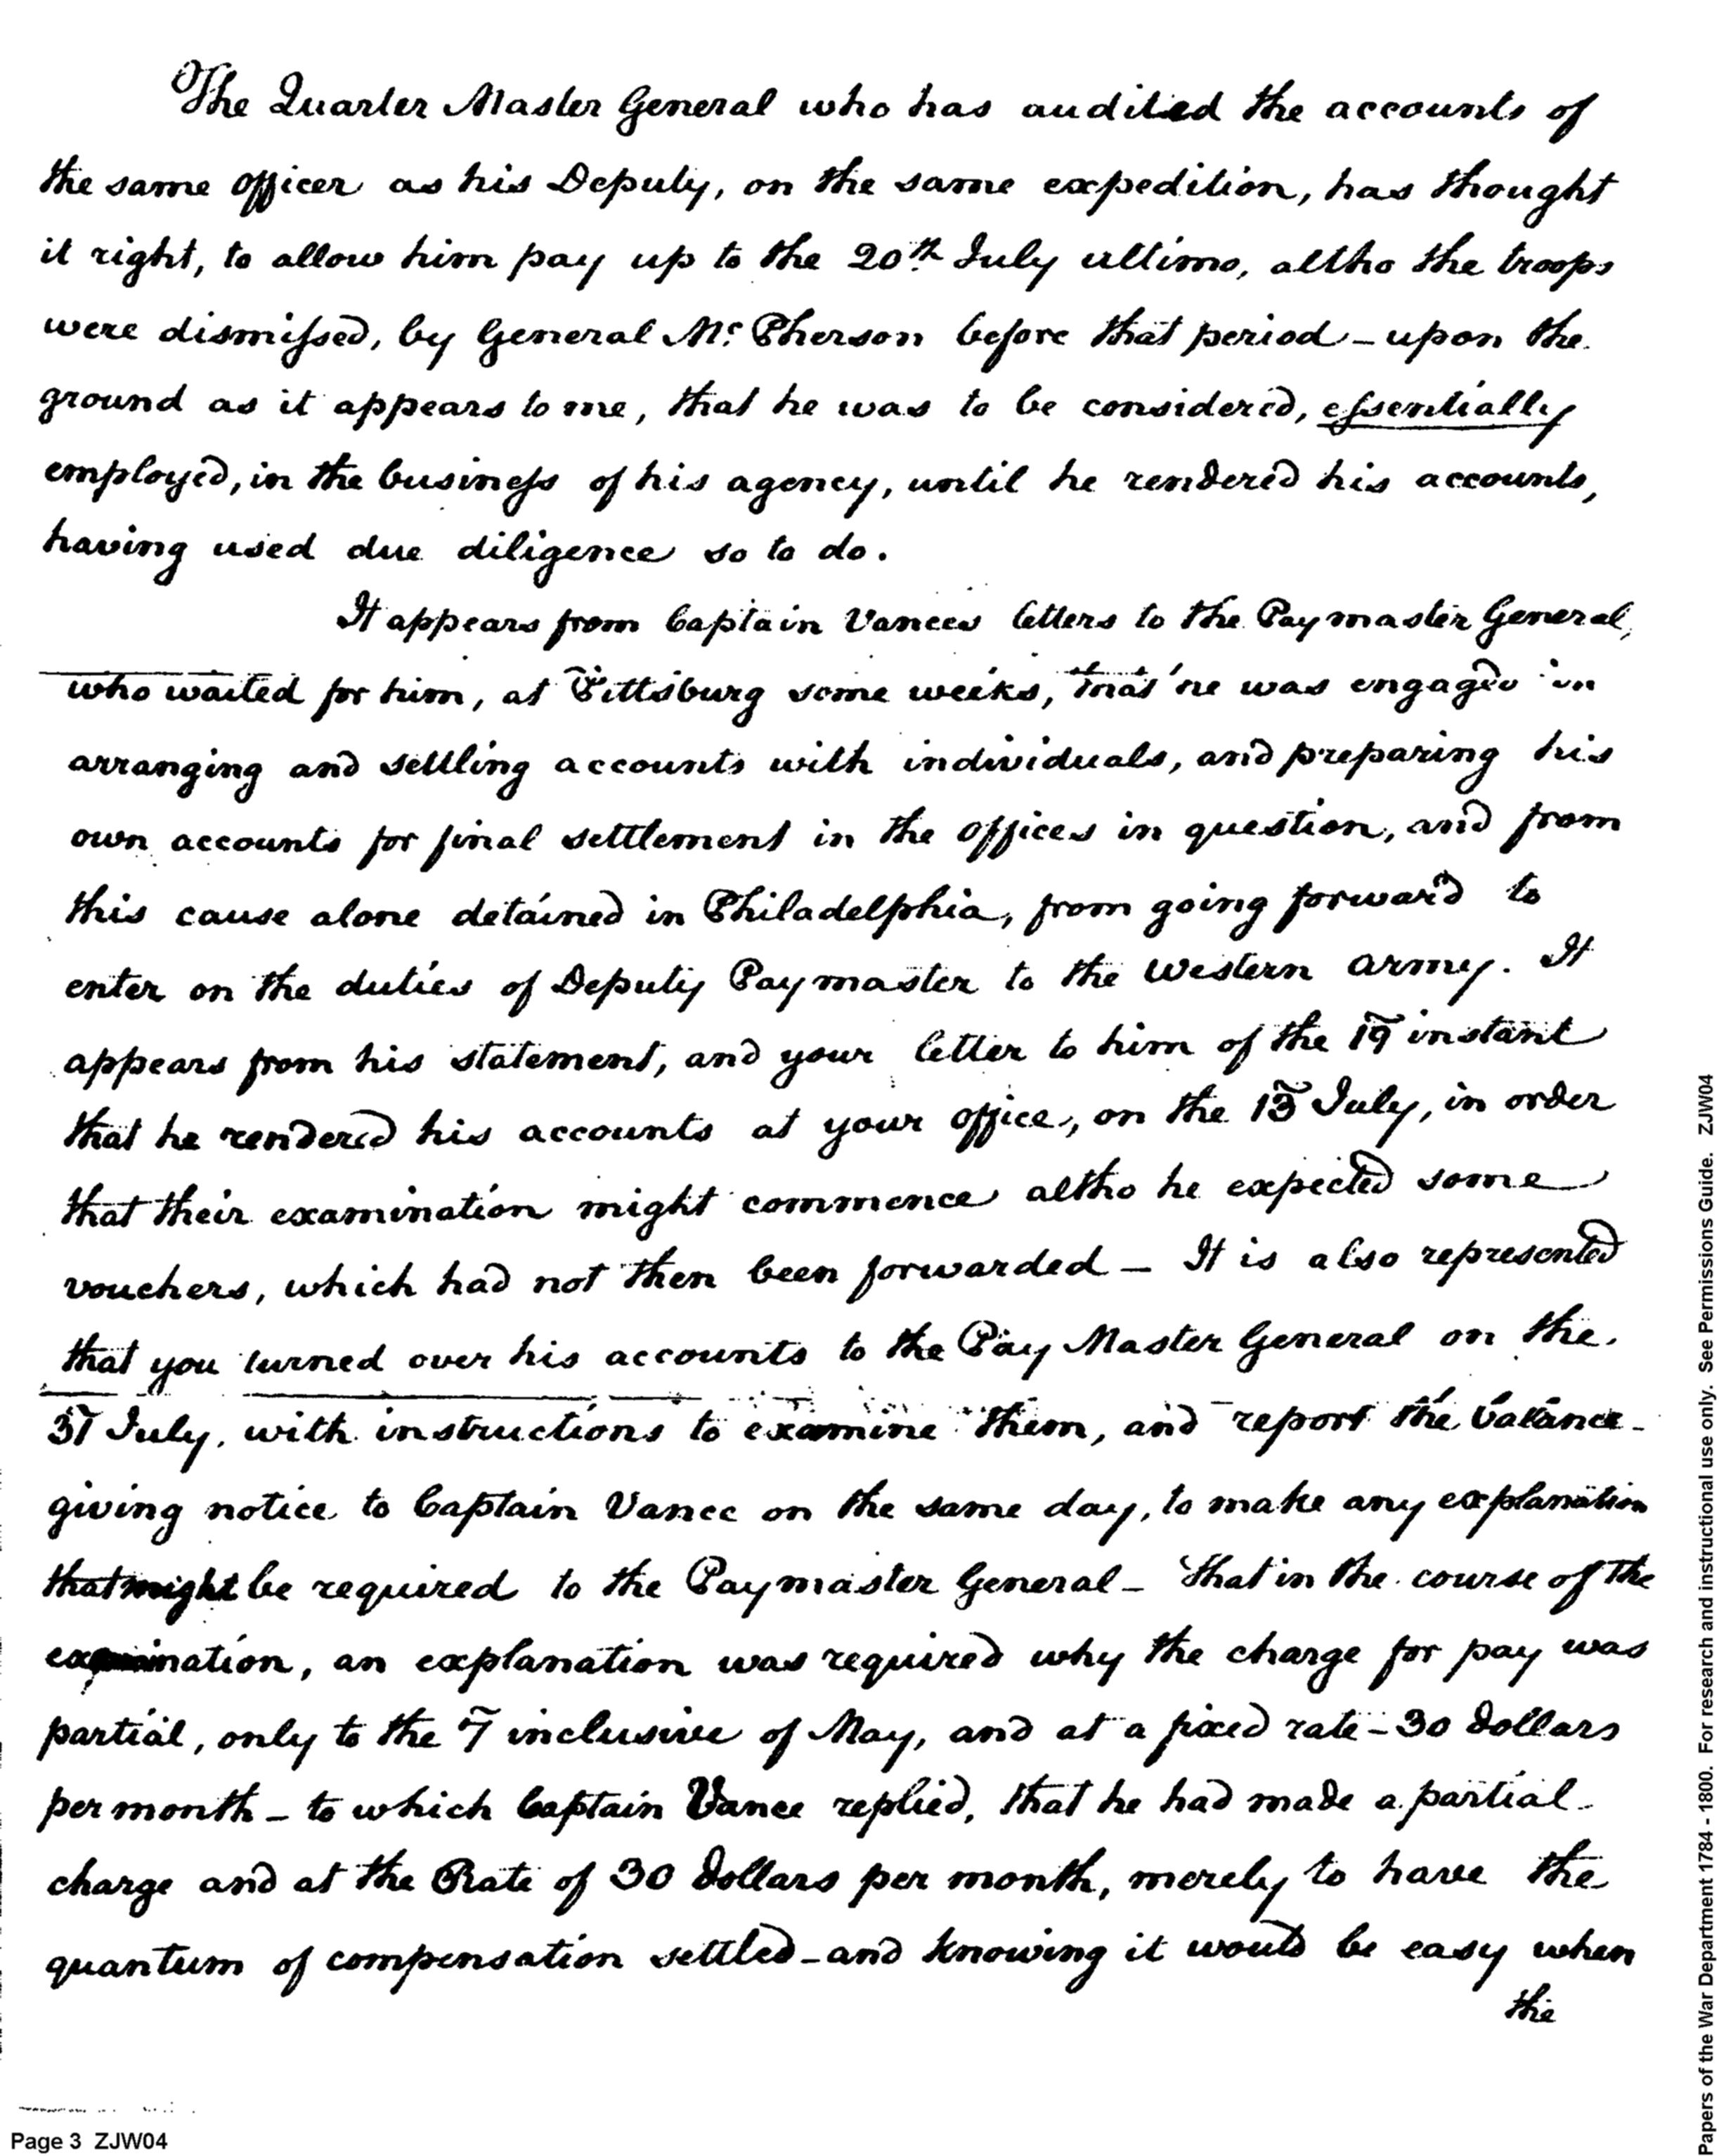 The Quarter Master General who has audited the accounts of
the same officer as his Deputy, on the same expedition, has thought
it right, to allow him pay up to the 20th July ultimo, altho the troops
were dismissed, by General Mc. Pherson before that period – upon the
ground as it appears to me, that he was to be considered, essentially
employed, in the business of his agency, until he rendered his accounts,
having used due diligence so to do.
It appears from Captain Vances letters to the Paymaster General,
who waited for him, at Pittsburg some weeks, that he was engaged in
arranging and settling accounts with individuals, and preparing his
own accounts for final settlement in the offices in question, and from
this cause alone detained in Philadelphia, from going forward to
enter on the duties of Deputy Paymaster to the Western Army. It
appears from his statement, and your letter to him of the 19 instant
that he rendered his accounts at your office, on the 13 July, in order
that their examination might commence altho he expected some
vouchers, which had not then been forwarded – It is also represented
that you turned over his accounts to the Pay Master General on the
31 July, with instructions to examine them, and report the balance –
giving notice to Captain Vance on the same day, to make any explanation
that might be required to the Paymaster General – That in the course of the
examination, an explanation was required why the charge for pay was
partial, only to the 7 inclusive of May, and at a fixed rate – 30 dollars
per month – to which Captain Vance replied, that he had made a partial
charge and at the Rate of 30 dollars per month, merely to have the
quantum of compensation settled – and knowing it would be easy when
the
Page 3 ZJW04
Papers of the War Department 1784 - 1800. For research and instructional use only. See Permissions Guide. ZJW04